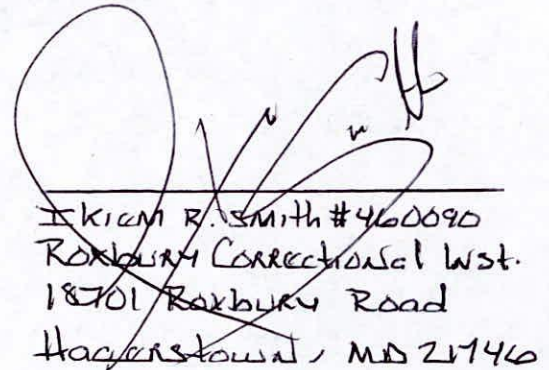 Ikiem R. Smith #460090
Roxbury Correctional Inst.
18701 Roxbury Road
Hagerstown, MD 21746